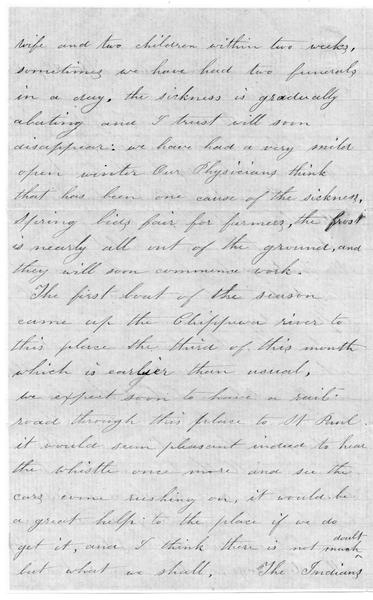 wife and two children within two weeks,
sometimes we have had two funerals
in a day, the sickness is gradually
abating and I trust will soon
disappear: we have had a very mild
open winter Our Physicians think
that has been one cause of the sickness,
Spring bids fair for farmers, the frost
is nearly all out of the ground, and
they will soon commence work.
The first boat of the season
came up the Chippewa river to
this place the third of this month
which is earlier than usual,
we expect soon to have a rail-
road through this place to St Paul.
it would seem pleasant indeed to hear
the whistle once more and see the
cars come rushing on, it would be
a great help to the place if we do
get it, and I think there is not much doubt
but what we shall. The Indians